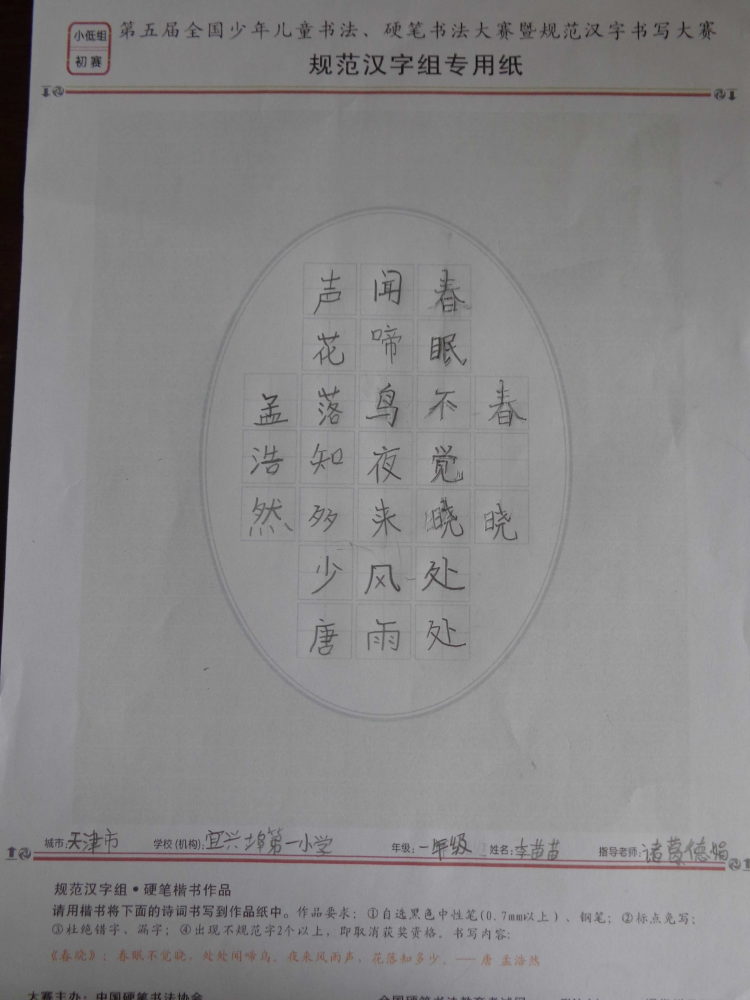 小低组
初赛
第五届全国少年儿童书法、硬笔书法大赛暨规范汉字书写大赛
规范汉字组专用纸
春晓
春眠不觉晓处处
闻啼鸟夜来风雨
声花落知多少唐
孟浩然
城市：天津市 学校(机构)：宜兴埠第一小学 年级：一年级 姓名：李苗苗 指导老师：
规范汉字组•硬笔楷书作品
请用楷书将下面的诗词书写到作品纸中。作品要求：①自选黑色中性笔(0.7mm以上)、钢笔；②标点免写；
③杜绝错字、漏字；④出现不规范字2个以上，即取消获奖资格。书写内容：
《春晓》：春眠不觉晓，处处闻啼鸟。夜来风雨声，花落知多少。——唐 孟浩然
大赛主办：中国硬笔书法协会